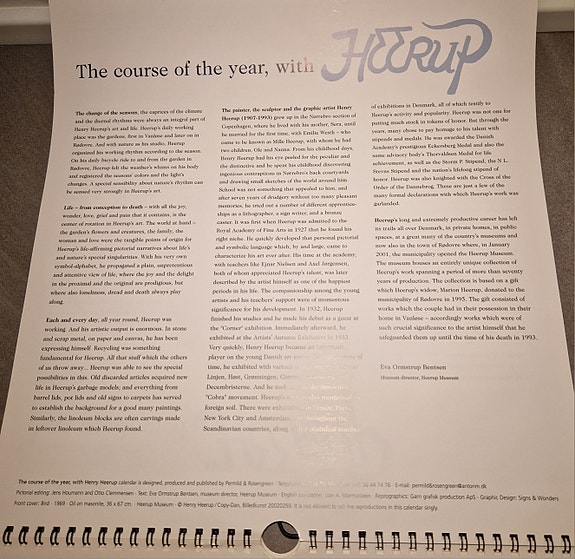 The course of the year, with HEERUP
The change of the seasons, the caprices of the climate
and the diurnal rhythms were always an integral part of
Henry Heerup's art and life. Heerup's daily working
place was the gardens, first in Vanløse and later on in
Rødovre. And with nature as his studio, Heerup
organized his working rhythm according to the season.
On his daily bicycle ride to and from the garden in
Rødovre, Heerup felt the weather's whims on his body
and registered the seasons' colors and the light's
changes. A special sensibility about nature's rhythm can
be sensed very strongly in Heerup's art.
Life – from conception to death – with all the joy,
wonder, love, grief and pain that it contains, is the
center of rotation in Heerup's art. The world at hand –
the garden's flowers and creatures, the family, the
woman and love were the tangible points of origin for
Heerup's life-affirming pictorial narratives about life's
and nature's special singularities. With his very own
symbol-alphabet, he propagated a plain, unpretentious
and attentive view of life, where the joy and the delight
in the proximal and the original are prodigious, but
where also loneliness, dread and death always play
along.
Each and every day, all year round, Heerup was
working. And his artistic output is enormous. In stone
and scrap metal, on paper and canvas, he has been
expressing himself. Recycling was something
fundamental for Heerup. All that stuff which the others
of us throw away... Heerup was able to see the special
possibilities in this. Old discarded articles acquired new
life in Heerup's garbage models; and everything from
barrel lids, pot lids and old signs to carpets has served
to establish the background for a good many paintings.
Similarly, the linoleum blocks are often carvings made
in leftover linoleum which Heerup found.
The painter, the sculptor and the graphic artist Henry
Heerup (1907-1993) grew up in the Nørrebro section of
Copenhagen, where he lived with his mother, Sera, until
he married for the first time, with Emilie Westh – who
came to be known as Mille Heerup, with whom he had
two children, Ole and Nanna. From his childhood days,
Henry Heerup had his eyes peeled for the peculiar and
the distinctive and he spent his childhood discovering
ingenious contraptions in Nørrebro's back courtyards
and drawing small sketches of the world around him
School was not something that appealed to him, and
after seven years of drudgery without too many pleasant
memories, he tried out a number of different apprentice-
ships as a lithographer, a sign writer, and a bronze
caster. It was first when Heerup was admitted to the
Royal Academy of Fine Arts in 1927 that he found his
right niche. He quickly developed that personal pictorial
and symbolic language which, by and large, came to
characterize his art ever after. His time at the academy,
with teachers like Ejnar Nielsen and Axel Jørgensen,
both of whom appreciated Heerup's talent, was later
described by the artist himself as one of the happiest
periods in his life. The companionship among the young
artists and his teachers' support were of momentous
significance for his development. In 1932, Heerup
finished his studies and he made his debut as a guest at
the "Corner" exhibition. Immediately afterward, he
exhibited at the Artists' Autumn Exhibition in 1933.
Very quickly, Henry Heerup became an important
player on the young Danish art
time, he exhibited with
Linjen, Høst, Grønningen,
Decembristerne. And he took
"Cobra" movement. Heerup's
foreign soil. There were
New York City and Amsterdam
Scandinavian countries, along
of exhibitions in Denmark, all of which testify to
Heerup's activity and popularity. Heerup was not for
putting much stock in tokens of honor. But through the
years, many chose to pay homage to his talent with
stipends and medals. He was awarded the Danish
Academy's prestigious Eckersberg Medal and also the
same advisory body's Thorvaldsen Medal for life
achievement, as well as the Storm P. Stipend, the N.L.
Stevns Stipend and the nation's lifelong stipend of
honor. Heerup was also knighted with the Cross of the
Order of the Dannebrog. These are just a few of the
many formal declarations with which Heerup's work was
garlanded.
Heerup's long and extremely productive career has left
its trails all over Denmark, in private homes, in public
spaces, at a great many of the country's museums and
now also in the town of Rødovre where, in January
2001, the municipality opened the Heerup Museum.
The museum houses an entirely unique collection of
Heerup's work spanning a period of more than seventy
years of production. The collection is based on a gift
which Heerup's widow, Marion Heerup, donated to the
municipality of Rødovre in 1995. The gift consisted of
works which the couple had in their possession in their
home in Vanløse – accordingly works which were of
such crucial significance to the artist himself that he
safeguarded them up until the time of his death in 1993.
Eva Ormstrup Bentsen
Museum director, Heerup Museum
The course of the year, with Henry Heerup calendar is designed, produced and published by Permild & Rosengreen · E-mail: permild&rosengreen@antonm.dk
Pictorial editing: Jens Houmann and Otto Clemmensen · Text: Eva Ormstrup Bentsen, museum director, Heerup Museum · English · Reprographics: Garn grafisk produktion ApS · Graphic Design: Signs & Wonders
Front cover: Bird · 1969 · Oil on masonite, 36 x 67 cm · Heerup Museum · © Henry Heerup / Copy-Dan, Billedkunst 20020259. It is not allowed to sell the reproductions in this calendar singly.